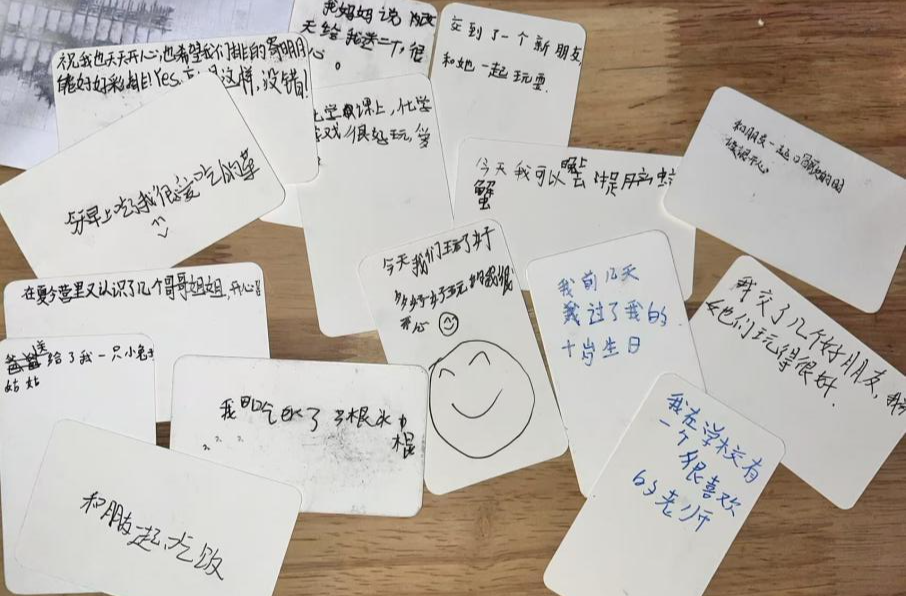 祝我也天天开心,也希望我们排的哥朋朋
能好好彩排!Yes,
这样,没错!
我妈妈说
天给我
很
心。
交到了一个新朋友
和她一起玩耍.
课上,化学
戏很好玩,
今天早上吃了我很爱吃的菜
今天我可以 去捉
蟹
和朋友一起
很开心。
今天我们玩了好
多好好玩的我很
开心
我前几天
我过了我的
十岁生日
我交了几个好朋友,
她们玩得很好.
在夏令营里又认识了几个哥哥姐姐,开心
给了我一只小兔
姑姑
我吃了3根冰
棍
我在学校有
一个很喜欢
的老师
和朋友一起吃饭